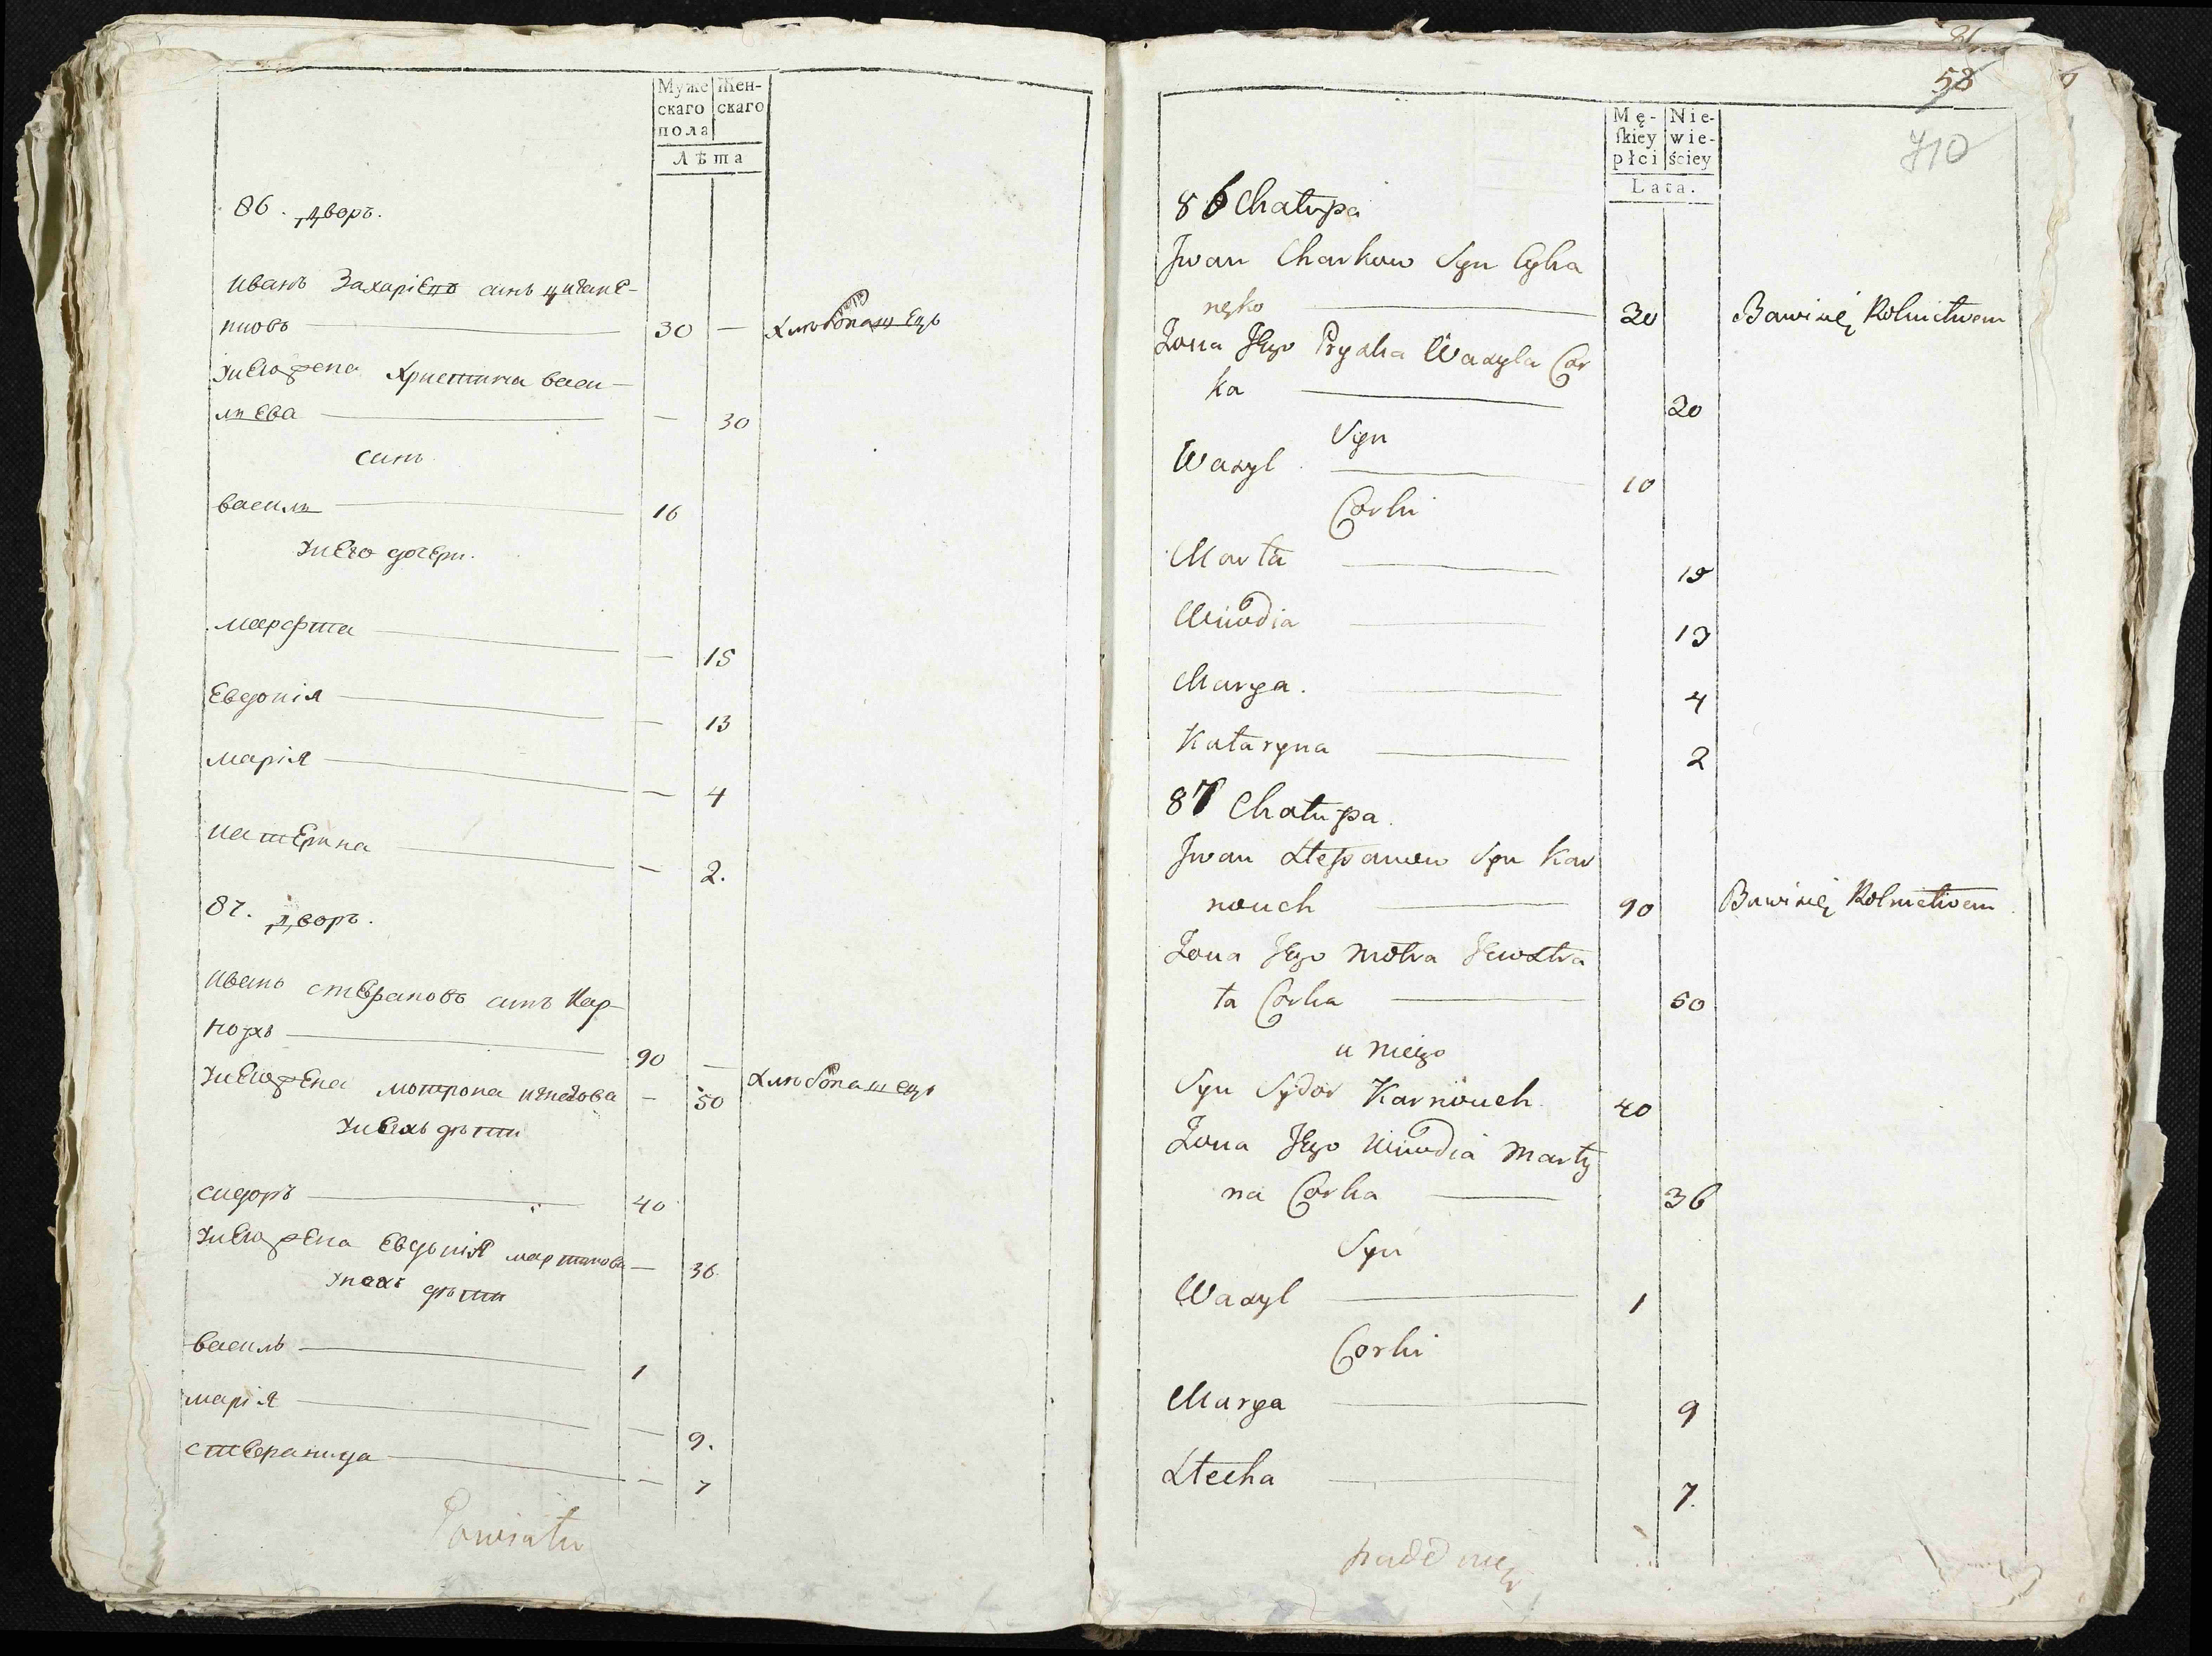 Муже
скаго
пола
Жен-
скаго
Лѣта
86. дворъ.
иванъ Захарiевъ синъ циган€-
нковъ — 30 —
хлѣбопашецъ
жена Христина васи-
лиева — — 30
синъ
василь — 16
дочери.
марфта — — 15
Евдокiя — — 13
марiя — — 4
катерина — — 2.
87. дворъ.
иванъ степановъ синъ Кар-
ноухъ — 90 —
хлѣбопашецъ
жена мотрона — 50
дѣти
сидоръ — 40
жена Евдокiя мартинова — 36.
дѣти
василь — 1
марiя — — 9.
степанида — — 7
Powiatu
58
710
Mę-
skiey
płci
Nie-
wie-
ściey
Lata.
86 Chałupa
Jwan Charkow Syn Cyha
nęko — 30 Bawi się Rolnictwem
Zona Jego Pryska Wasyla Cor
ka — 20
Syn
Wasyl — 10
Corki
Marta — 15
Wiwdia — 13
Marya. — 4
Kataryna — 2
87 Chałupa.
Jwan Stefanow Syn Kar
nouch — 90 Bawi się Rolnictwem
Zona Jego Motra Jewstra
ta Corka — 50
u niego
Syn Sydor Karnouch. 40
Zona Jego Wiwdia Marty
na Corka — 36
Syn
Wasyl — 1
Corki
Marya — 9
Stecha — 7.